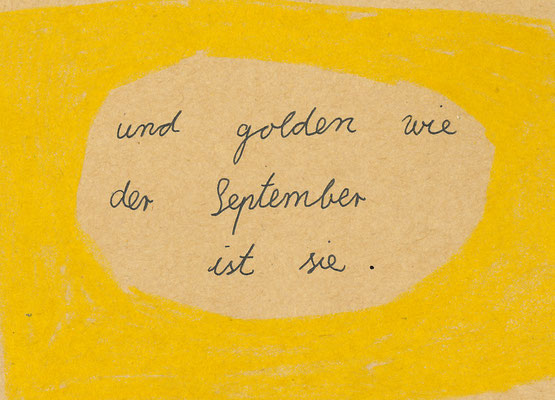 und golden wie
der September
ist sie.